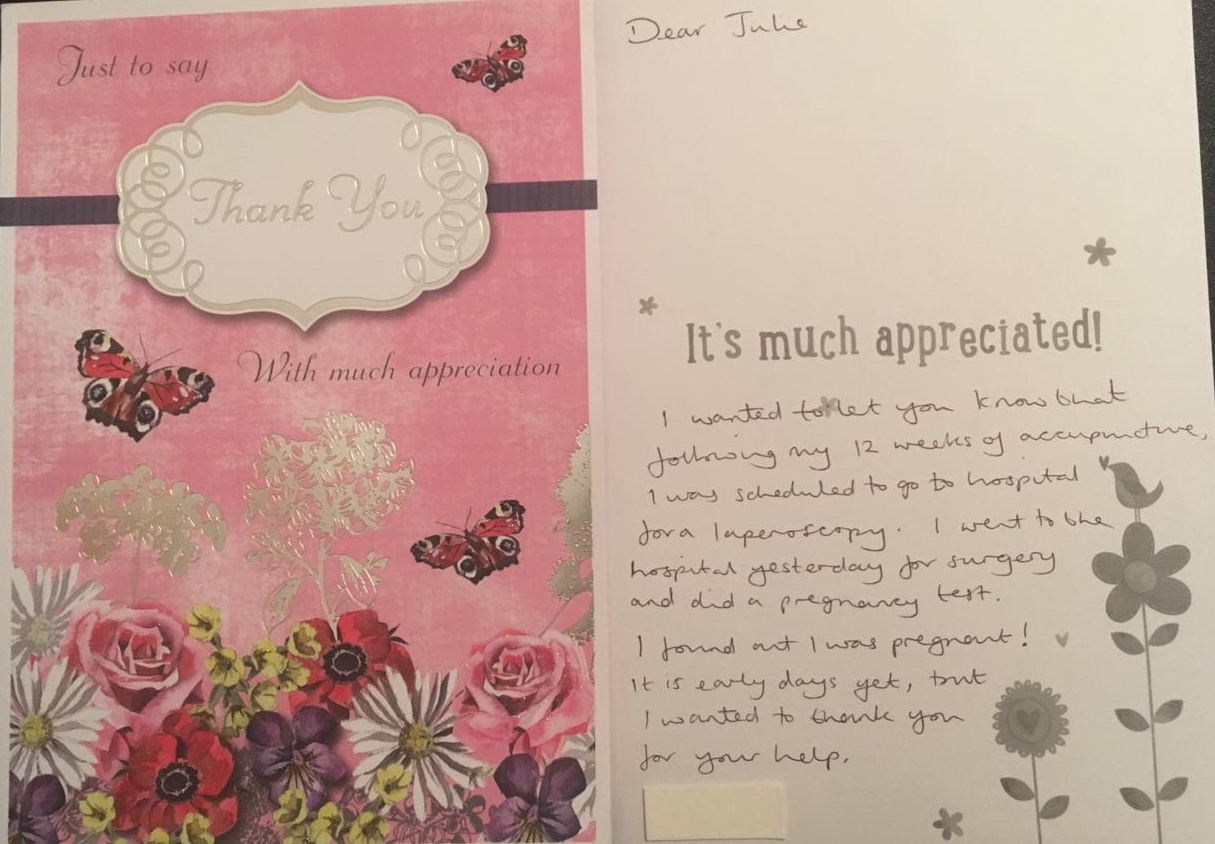 Just to say
Thank You
With much appreciation
Dear Julie
It's much appreciated!
I wanted to let you know that
following my 12 weeks of accupuncture,
I was scheduled to go to hospital
for a laperoscopy. I went to the
hospital yesterday for surgery
and did a pregnancy test.
I found out I was pregnant!
It is early days yet, but
I wanted to thank you
for your help.